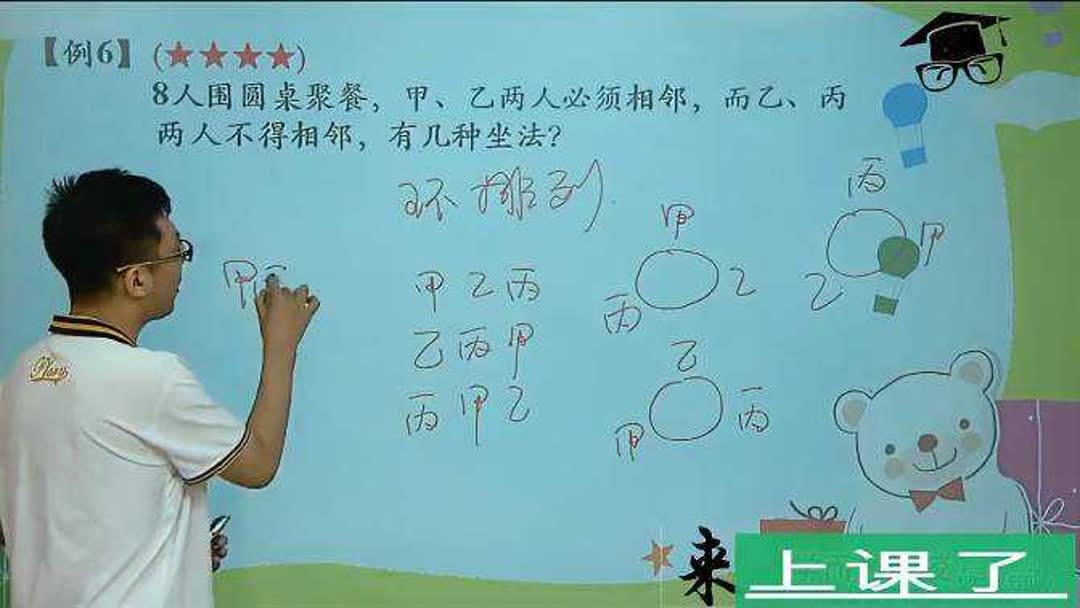 【例6】(★★★★)
8人围圆桌聚餐，甲、乙两人必须相邻，而乙、丙
两人不得相邻，有几种坐法？
环排列
甲
甲乙丙
乙丙甲
丙甲乙
甲
乙
丙
丙
甲
乙
乙
甲
丙
来
上课了